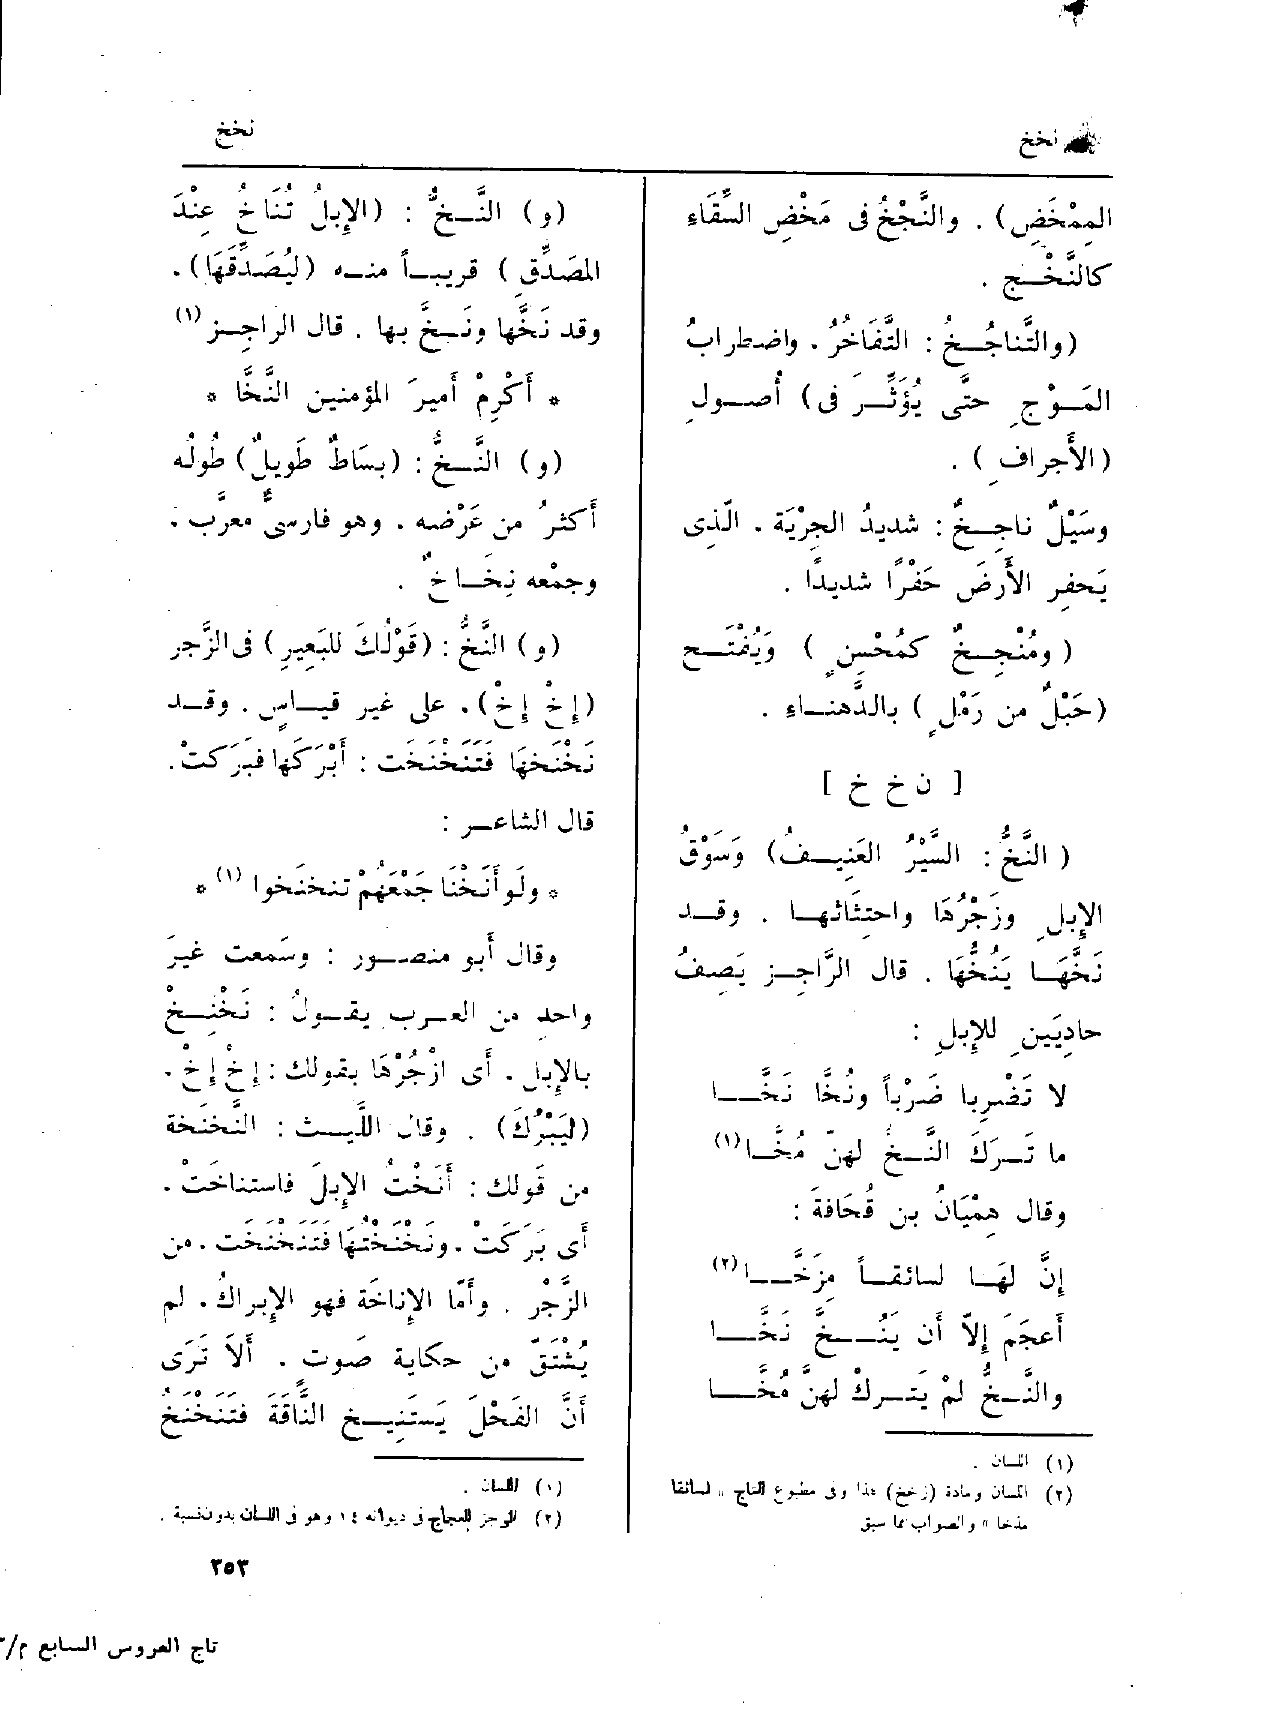 نخخ
نخخ
المِمْخَضِ) . والنَّجْخُ فى مَخْضِ السِّقَاءِ
كالنَّخْـجِ .
(والتَّناجُـخُ : التَّفَاخُرُ . واضطرابُ
المَـوْجِ حتَّى يُؤَثِّـرَ فى) أُصـولِ
(الأَجرافِ) .
وسَيْلٌ ناجِـخٌ : شديدُ الجِرْيَة . الَّذِى
يَحفِر الأَرضَ حَفْرًا شديدًا .
(ومُنْجِـخٌ كمُحْسِنٍ) وَيُفْتَـح
(حَبْلٌ من رَمْلٍ) بالدَّهنـاءِ .
[ ن خ خ ]
(النَّخُّ : السَّيْرُ العَنِيـفُ) وَسَوْقُ
الإِبلِ وزَجْرُهَا واحتِثَاثها . وقـد
نَخَّهَـا يَنُخُّهَا . قال الرَّاجِـز يَصِفُ
حادِيَينِ للإِبلِ :
لا تَضْرِبا ضَرْباً ونُخَّا نَخَّــا
ما تَـرَكَ النَّـخُّ لهنّ مُخَّـا(١)
وقال هِمْيَانُ بن قُحَافةَ :
إِنَّ لهَـا لسائقـاً مِزَخَّــا(٢)
أَعجَمَ إِلاّ أَن يَنُــخَّ نَخَّــا
والنَّـخُّ لمْ يَتـركْ لهنَّ مُخَّــا
(١) اللسان .
(٢) اللسان ومادة (زخخ) هذا وفى مطبوع التاج « لسائقا
مذخا » والصواب مما سبق
(و) النَّـخُّ : (الإِبلُ تُنَاخُ عِنْدَ
المصَدِّقِ) قريبـاً منـه (ليُصَدِّقَهَا) .
وقد نَخَّها ونَـخَّ بها . قال الراجِـز(١)
* أَكْرِمْ أَميرَ المؤمنين النَّخَّا *
(و) النَّـخُّ : (بسَاطٌ طَويلٌ) طُولُه
أَكثرُ من عَرْضه . وهو فارسىٌّ معرَّب .
وجمْعه نِخَـاخٌ .
(و) النَّخُّ : (قَوْلُكَ للبَعِيرِ) فى الزَّجر
(إِخْ إِخْ) . على غير قيـاسٍ . وقـد
نَخْنَخَهَا فَتَنَخْنَخَت : أَبْرَكَها فبَرَكتْ .
قال الشاعـر :
* ولَو أَنَخْنَا جَمْعَهُمْ تنخنَخوا (١) *
وقال أَبو منصـور : وسَمعت غيرَ
واحدِ من العـرب يقـولُ : نَخْنِـخْ
بالإِبل . أَى ازْجُرْهَا بقولك : إِخْ إِخْ .
(ليَبْرُكَ) . وقال اللَّيـث : النَّخنَخة
من قَولك : أَنَخْتُ الإِبلَ فاستناخَتْ .
أَى بَرَكَتْ . ونَخْنَخْتُهَا فَتَنَخْنَخَت . من
الزَّجْر . وأَمّا الإِناخَة فهو الإِبراكُ . لم
يُشْتَقّ من حكاية صَوتٍ . أَلاَ تَرَى
أَنَّ الفَحْلَ يَستَنِيـخ النَّاقَةَ فتَنَخْنَخُ
(١) اللسان .
(٢) الرجز للعجاج فى ديوانه ١٤ وهو فى اللسان بدون نسبة .
٣٥٣
تاج العروس السابع م/